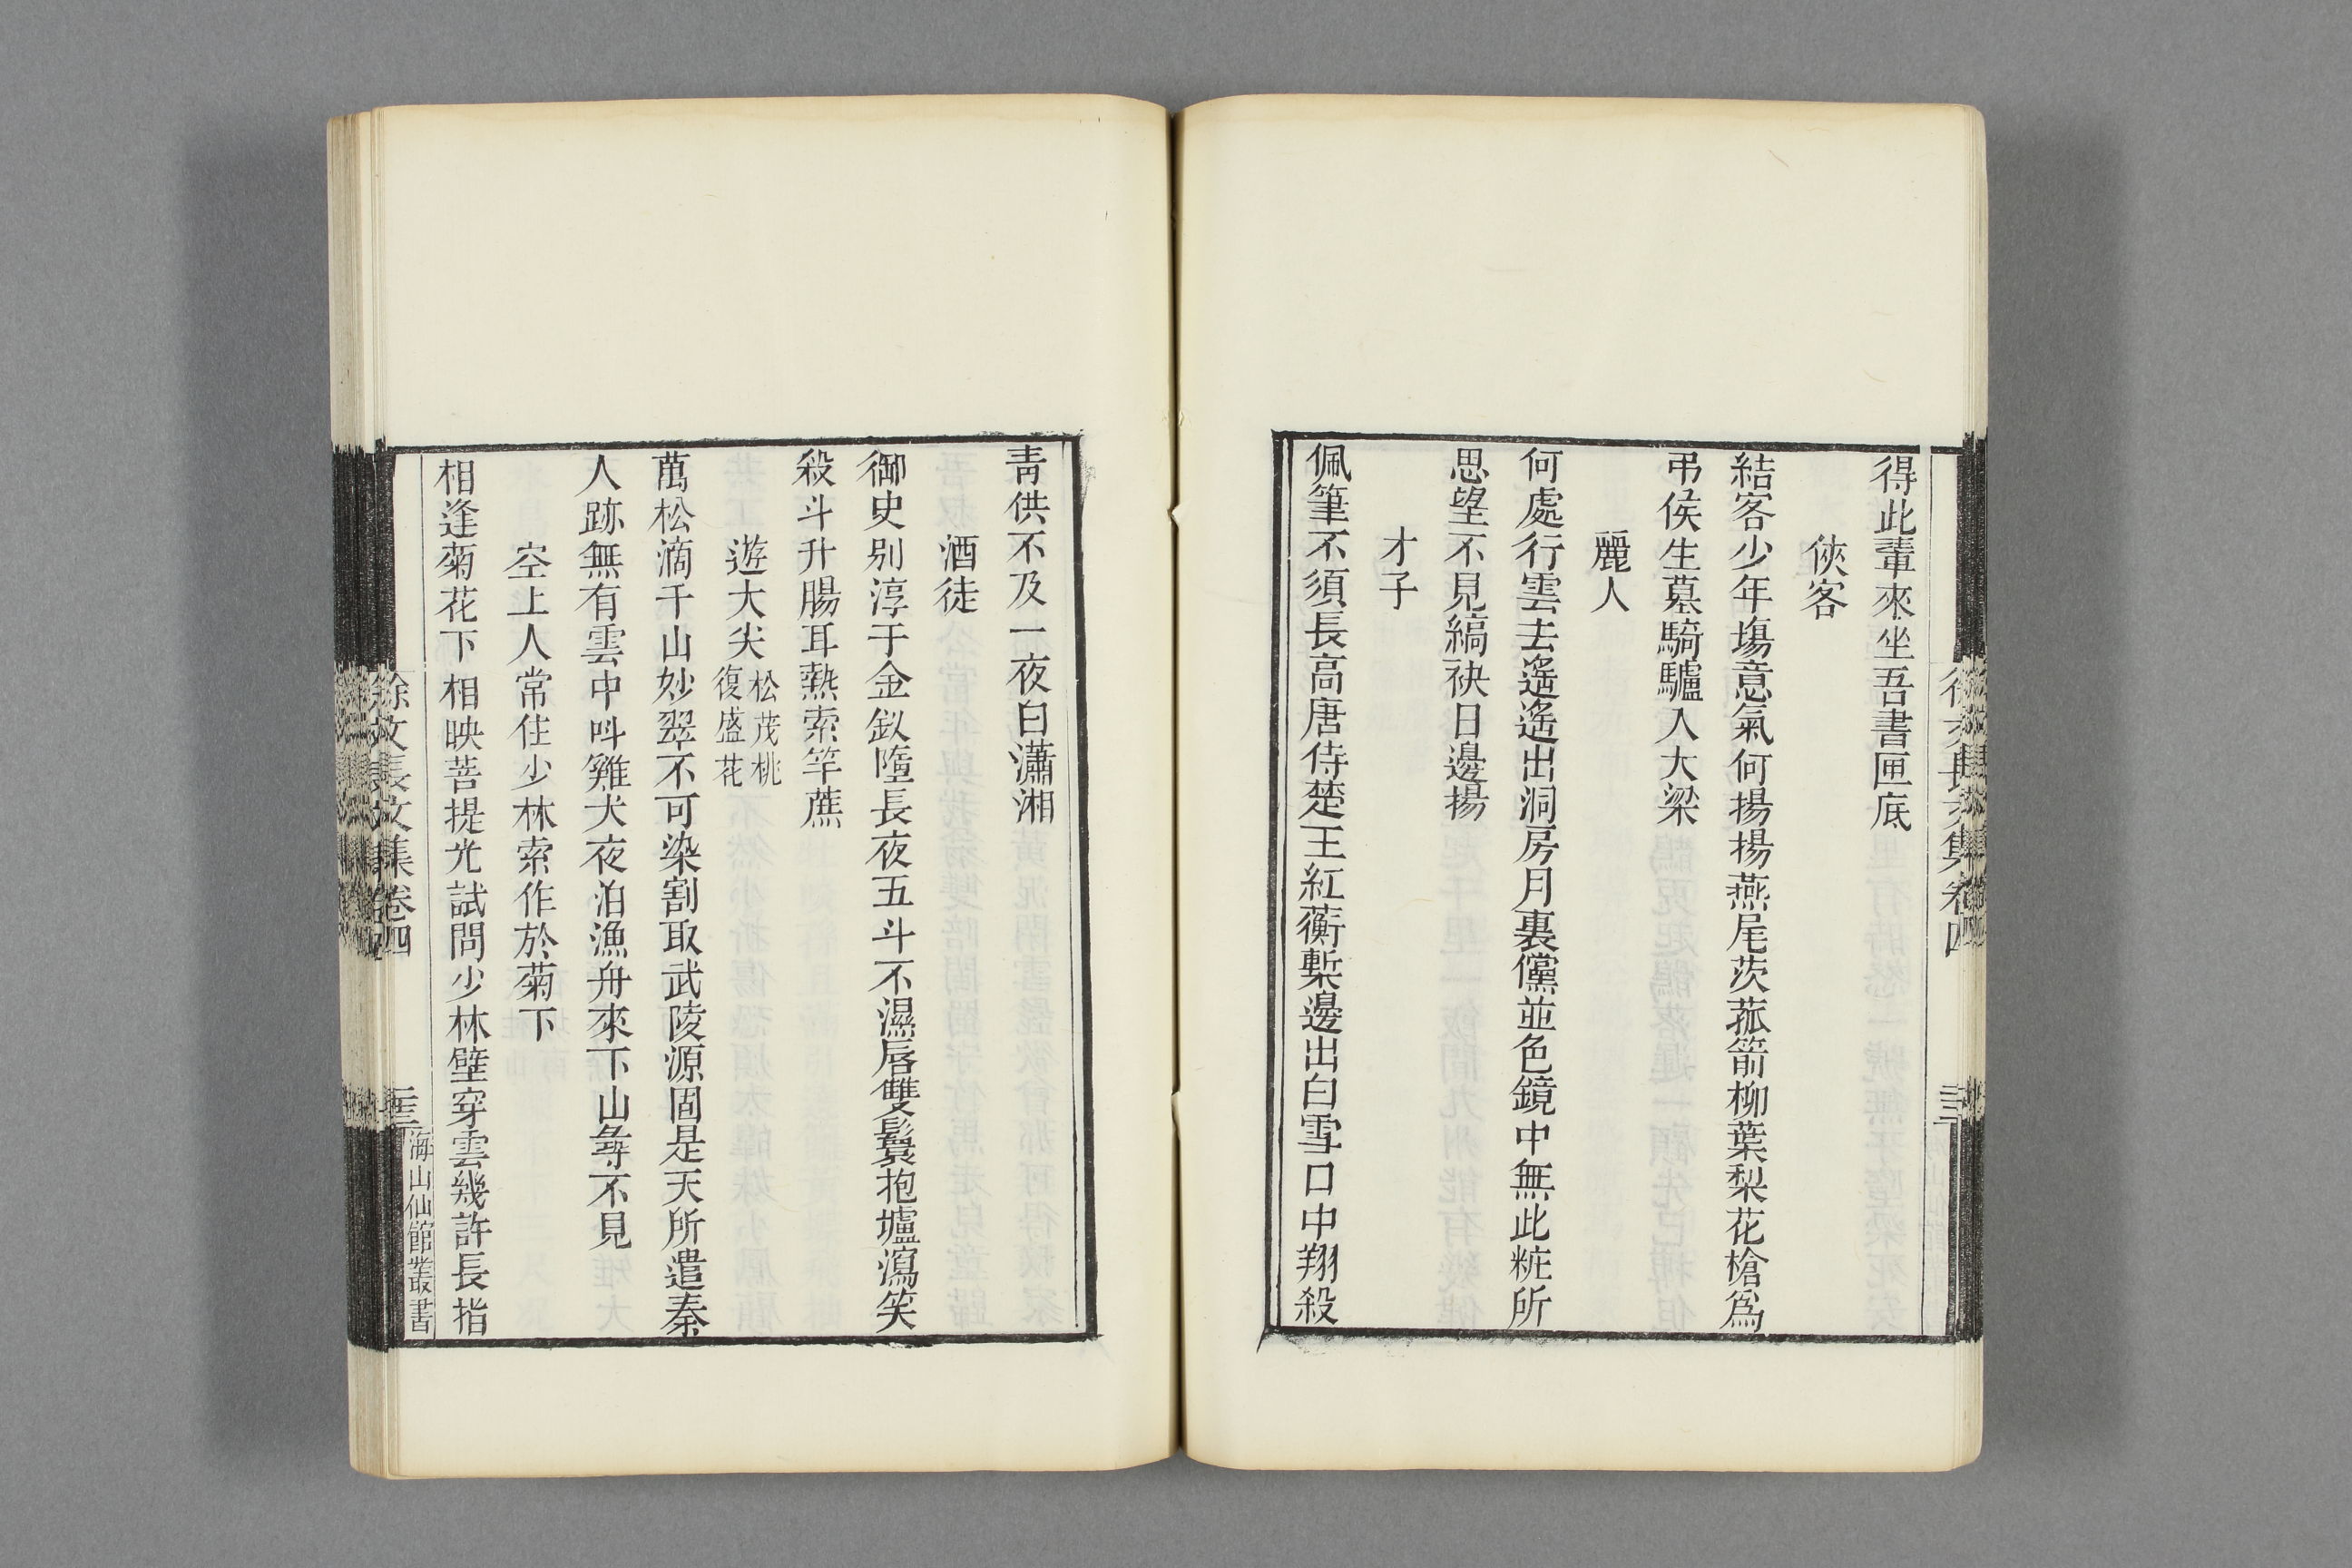 得此輩來坐吾書匣底
俠客
結客少年塲意氣何揚揚燕尾茨菰箭柳葉梨花槍爲
弔侯生墓騎驢入大梁
麗人
何處行雲去遙遙出洞房月裏儻並色鏡中無此粧所
思望不見縞袂日邊揚
才子
佩筆不須長高唐侍楚王紅蘅槧邊出白雪口中翔殺
青供不及一夜白瀟湘
酒徒
御史别淳于金釵墮長夜五斗不濕唇雙鬟抱壚瀉笑
殺斗升腸耳熱索竿蔗
遊大尖松茂桃
復盛花
萬松滴千山妙翠不可染割取武陵源固是天所遣秦
人跡無有雲中呌雞犬夜泊漁舟來下山㝷不見
空上人常住少林索作於菊下
相逢菊花下相映菩提光試問少林壁穿雲幾許長指
徐文長文集卷四
海山仙館叢書